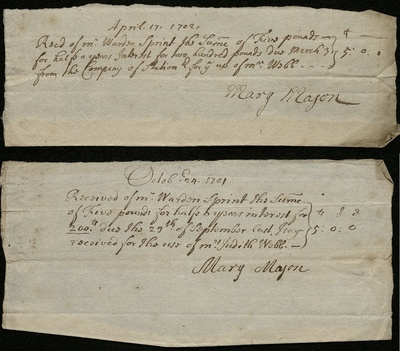 April 17. 1702.
Reced of mr. Warden Sprint the Sume of Five pounds
for halfe a years Interest for two hundred pounds due March 5: 0: 0
from the Company of Station & for ye use of mrs Webb
Mary Mason
Octob. 24. 1701
Received of mr. Warden Sprint the Sume
of Five pounds for halfe a years interest for
200ll due the 29th of September last, I say 5: 0: 0
received for the use of mrs Judeth Webb
Mary Mason